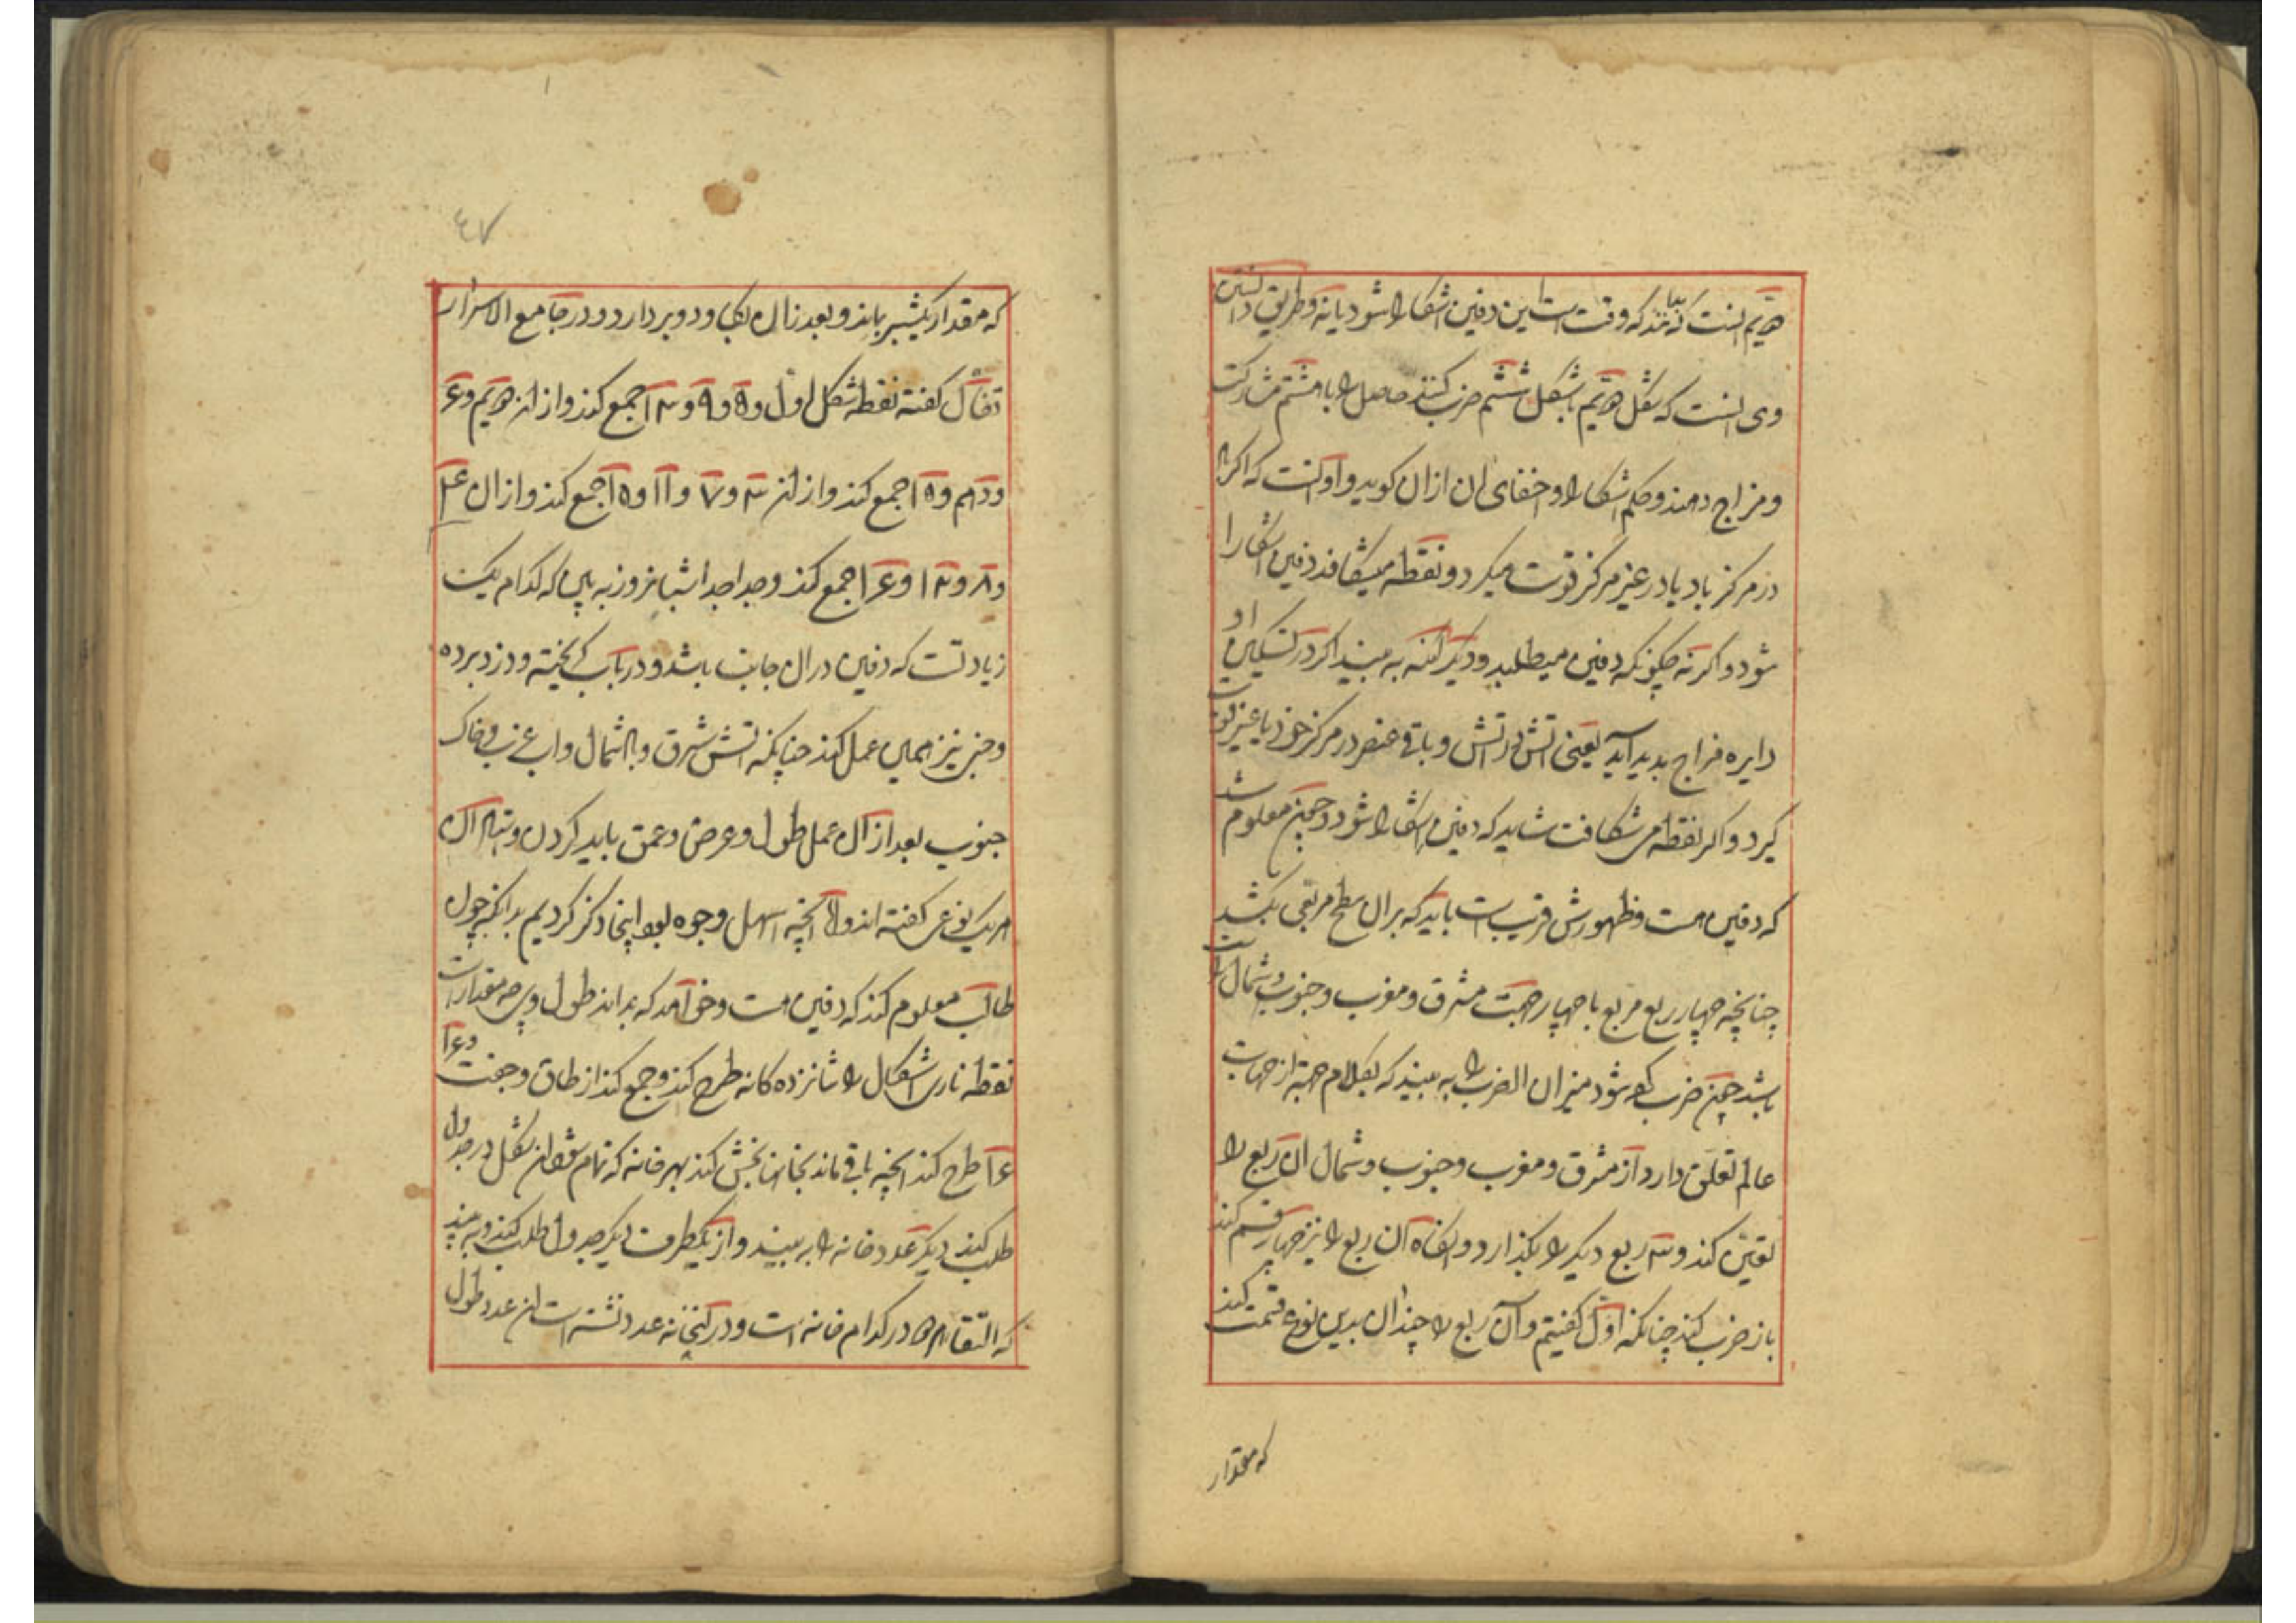 هیتم آنست که بداند که وقت است این دفین آشکارا شود یا نه و طریق دانستن
وی آنست که شکل هیتم با شکل ششم ضرب کنند حاصل را با هشتم مشارکت
و مزاج دهند و حکم آشکارا و اخفای آن ازان گویند و او آنست که اگر
در مرکز باد یا در غیر مرکز قوت میگیرد و نقطه میشکافد دفین آشکارا
شود و اگر نه چگونکه دفین میطلبد و دیگر آنکه به بیند اگر در تسکین او
دایره مزاج بدید آید یعنی آتش در آتش و باقی عنصر در مرکز خود یا غیر قوت
گیرد و اگر نقطه می شکافت شاید که دفین آشکارا شود و چون معلوم شد
که دفین هست و ظهورش قریب است باید که بران سطح مربعی بکشد
چنانچه چهار ربع مربع با چهار جهت مشرق و مغرب و جنوب و شمال راست
باشد چون ضرب کرده شود میزان الضرب را به بیند که بکدام جهت از جهات
عالم تعلق دارد از مشرق و مغرب و جنوب و شمال آن ربع را
تعین کند و سه ربع دیگر را بگذارد و آنگاه آن ربع را نیز چهار قسم کند
باز ضرب کند چنانکه اول گفتیم و آن ربع را چندان بدین نوع قسمت کند
که مقدار
٤٧
که مقدار یکشبر باند و بعد زان بکاود و بردارد و در جامع الاسرار
نقطه شکل اول و ٥ و ٩ و ١٣ جمع کند و از آن هیتم و ٤
و دهم و ١٥ جمع کند و از آن ٣ و ٧ و ١١ و ١٥ جمع کند و ازان ٤
و ٨ و ١٢ و ١٤ جمع کند و جدا جدا به بین که کدام یک
زیادتست که دفین دران جانب باشد و در باب گریخته و دزد برده
و خبر نیز همین عمل کند چنانکه آتش شرق و باد شمال و آب غرب و خاک
جنوب بعد ازان عمل طول و عرض و عمق باید کردن و
هر یک نوعی گفته اند و لا آنچه اسهل وجوه بود اینجا ذکر کردیم بدانکه چون
طالب معلوم کند که دفین هست و خواهد که بداند طول وی چه مقدار است
نقطه ناری اشکال را شانزده کانه طرح کند و جمع کند از طاق و جفت و ١٤
طرح کند آنچه باقی ماند بخانها بخش کند بهر خانه که تمام شود آن شکل در جدول
طلب کند دیگر عدد خانه را به بیند و از یکطرف دیگر جدول طلب کند و به بیند
که التقا هر دو در کدام خانه است و در آنخانه عدد نشسته است آن عدد طول